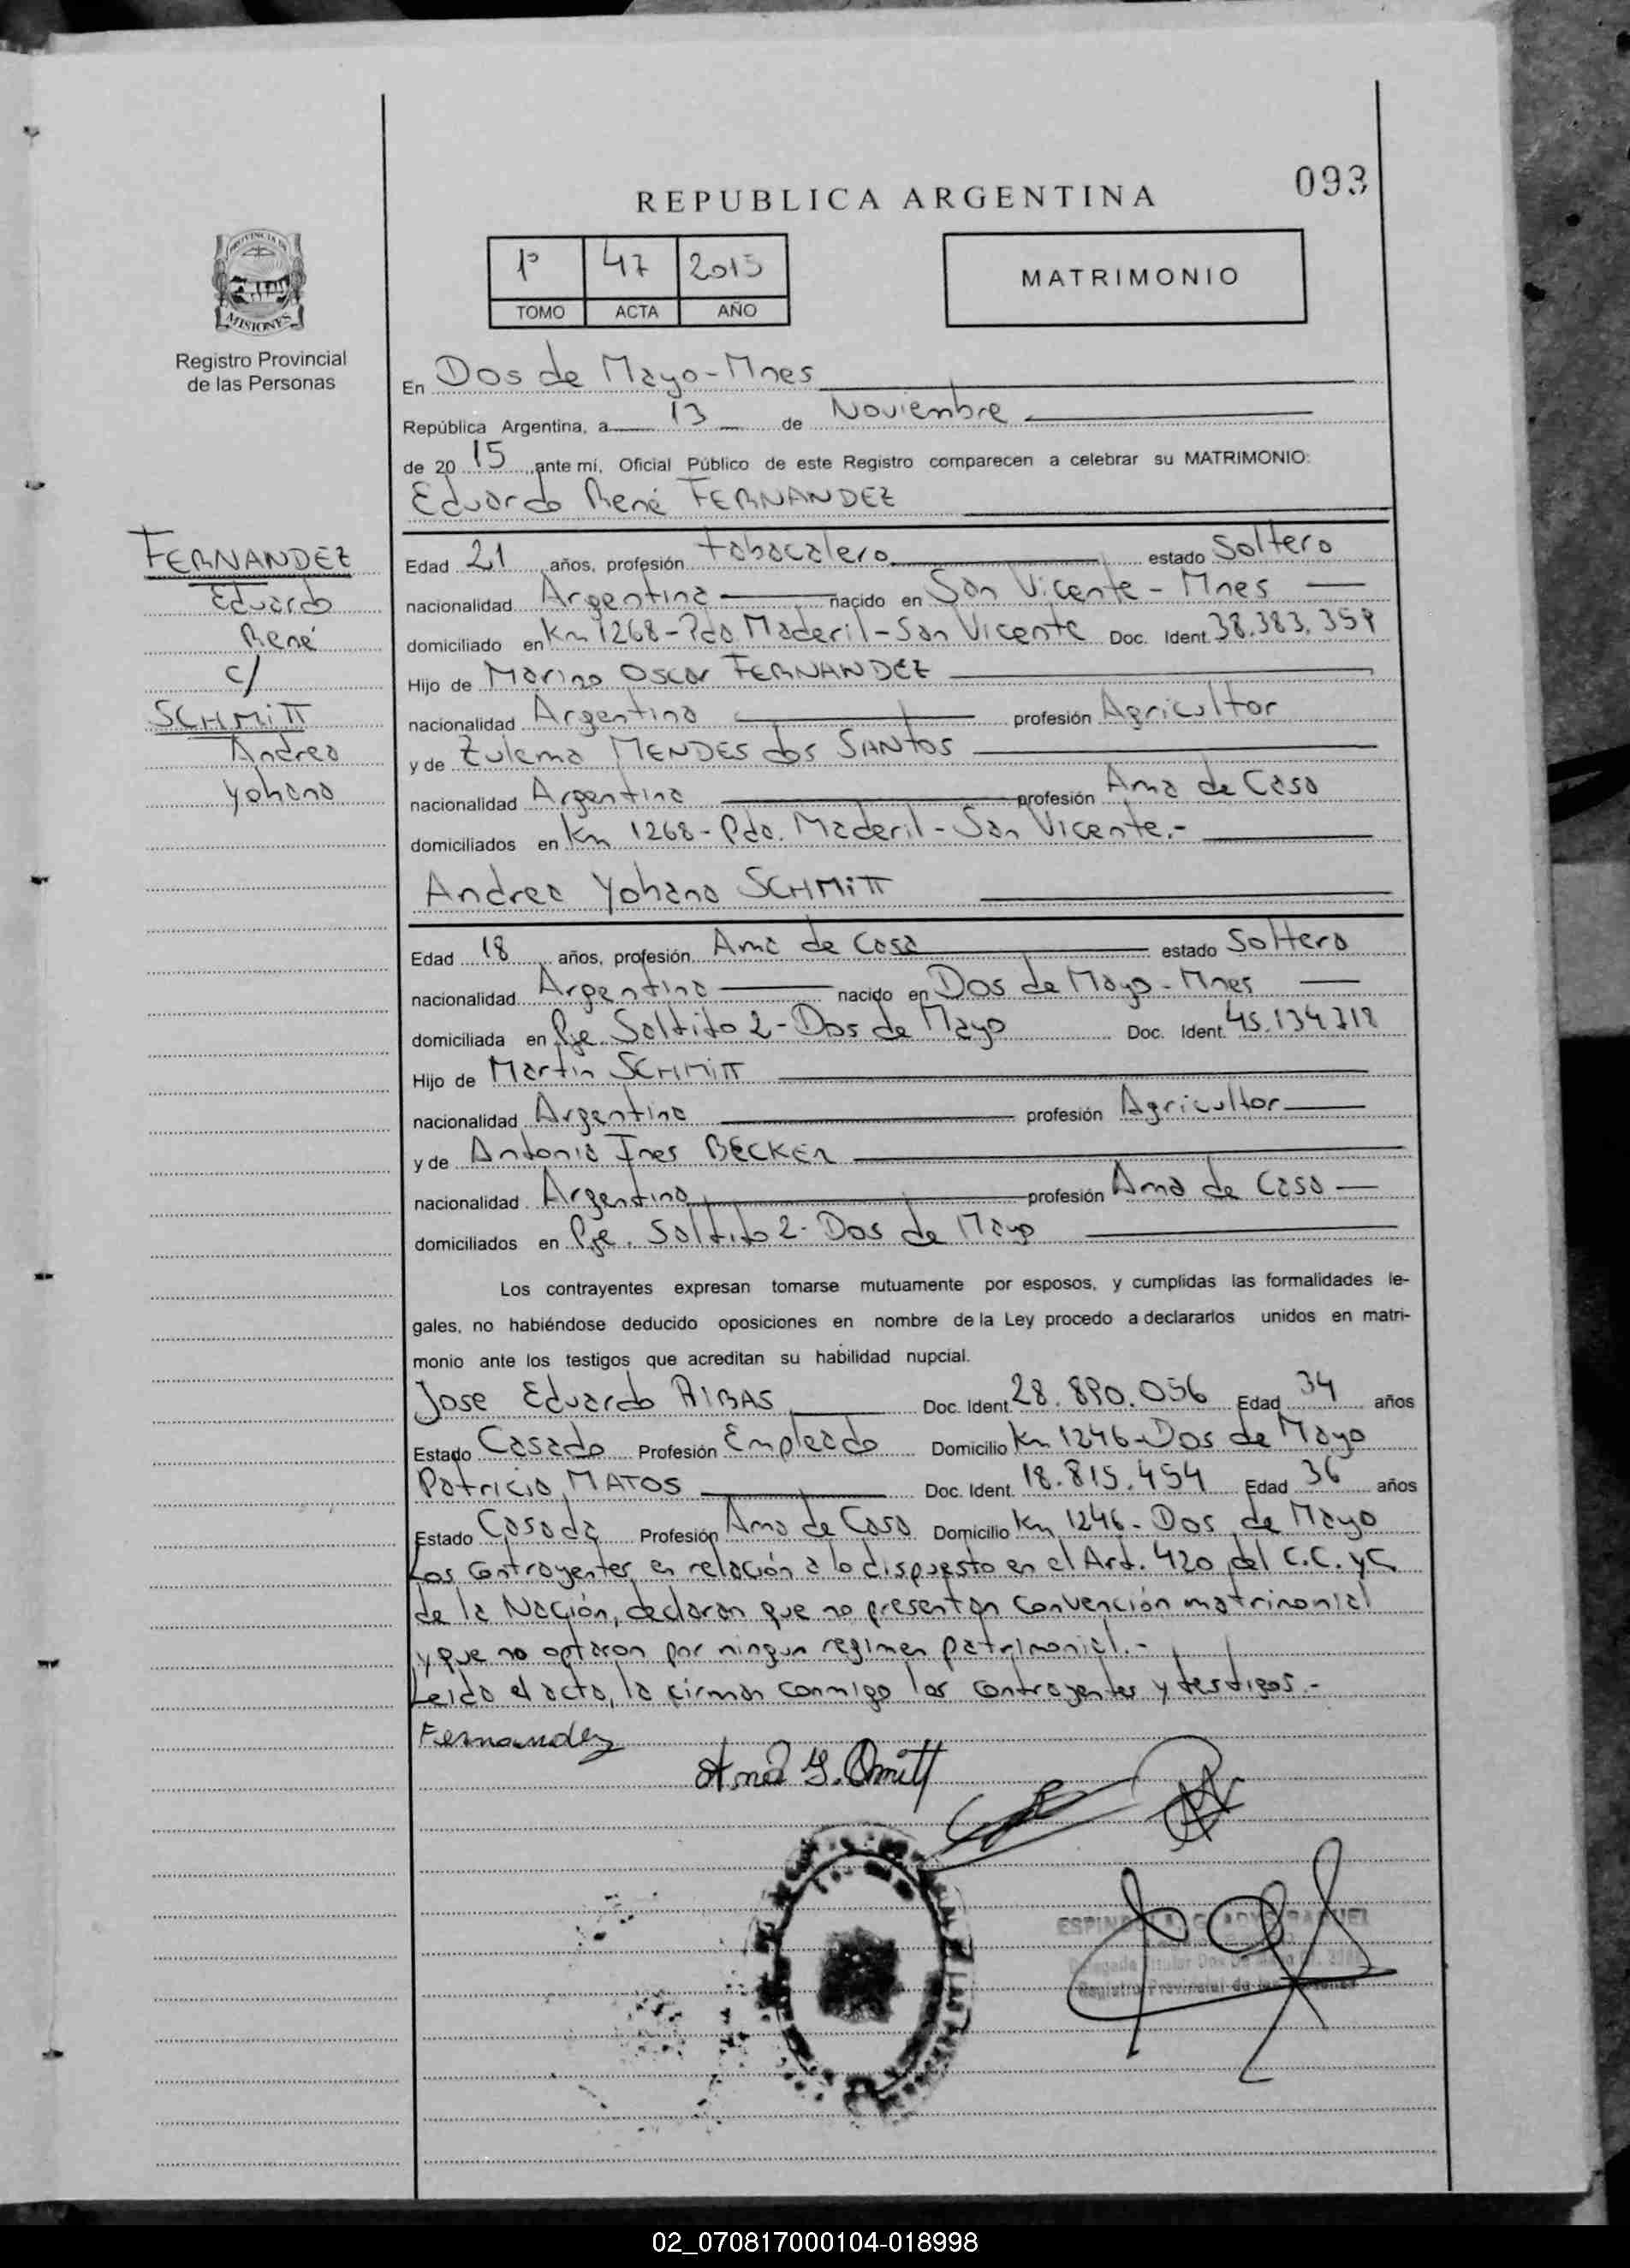 093
REPUBLICA ARGENTINA
1º 47 2015
TOMO ACTA AÑO
MATRIMONIO
PROVINCIA DE
MISIONES
Registro Provincial
de las Personas
En Dos de Mayo-Mnes
República Argentina, a 13 de Noviembre
de 20 15 ante mí, Oficial Público de este Registro comparecen a celebrar su MATRIMONIO:
Eduardo René FERNANDEZ
FERNANDEZ
Eduardo
René
c/
SCHMITT
Andrea
Yohana
Edad 21 años, profesión tabacalero estado Soltero
nacionalidad Argentina nacido en San Vicente - Mnes
domiciliado en Km 1268-Pdo. Maderil-San Vicente Doc. Ident. 38.383.359
Hijo de Marino Oscar FERNANDEZ
nacionalidad Argentino profesión Agricultor
y de Zulema MENDES dos SANTOS
nacionalidad Argentina profesión Ama de Casa
domiciliados en Km 1268-Pdo. Maderil-San Vicente.-
Andrea Yohana SCHMITT
Edad 18 años, profesión Ama de Casa estado Soltera
nacionalidad Argentina nacido en Dos de Mayo-Mnes
domiciliada en Pje. Saltito 2-Dos de Mayo Doc. Ident. 45.134.718
Hijo de Martin SCHMITT
nacionalidad Argentina profesión Agricultor
y de Antonia Ines BECKER
nacionalidad Argentina profesión Ama de Casa
domiciliados en Pje. Saltito 2-Dos de Mayo
Los contrayentes expresan tomarse mutuamente por esposos, y cumplidas las formalidades le-
gales, no habiéndose deducido oposiciones en nombre de la Ley procedo a declararlos unidos en matri-
monio ante los testigos que acreditan su habilidad nupcial.
Jose Eduardo RIBAS Doc. Ident. 28.890.056 Edad 34 años
Estado Casado Profesión Empleado Domicilio Km 1246-Dos de Mayo
Patricia MATOS Doc. Ident. 18.815.454 Edad 36 años
Estado Casada Profesión Ama de Casa Domicilio Km 1246-Dos de Mayo
Los contrayentes en relación a lo dispuesto en el Art. 420 del C.C. y C
de la Nación, declaran que no presentan convención matrimonial
y que no optaron por ningun regimen patrimonial.-
Leida el acta, la firman conmigo los contrayentes y testigos.-
Fernandez
Registro Provincial de las
02_070817000104-018998